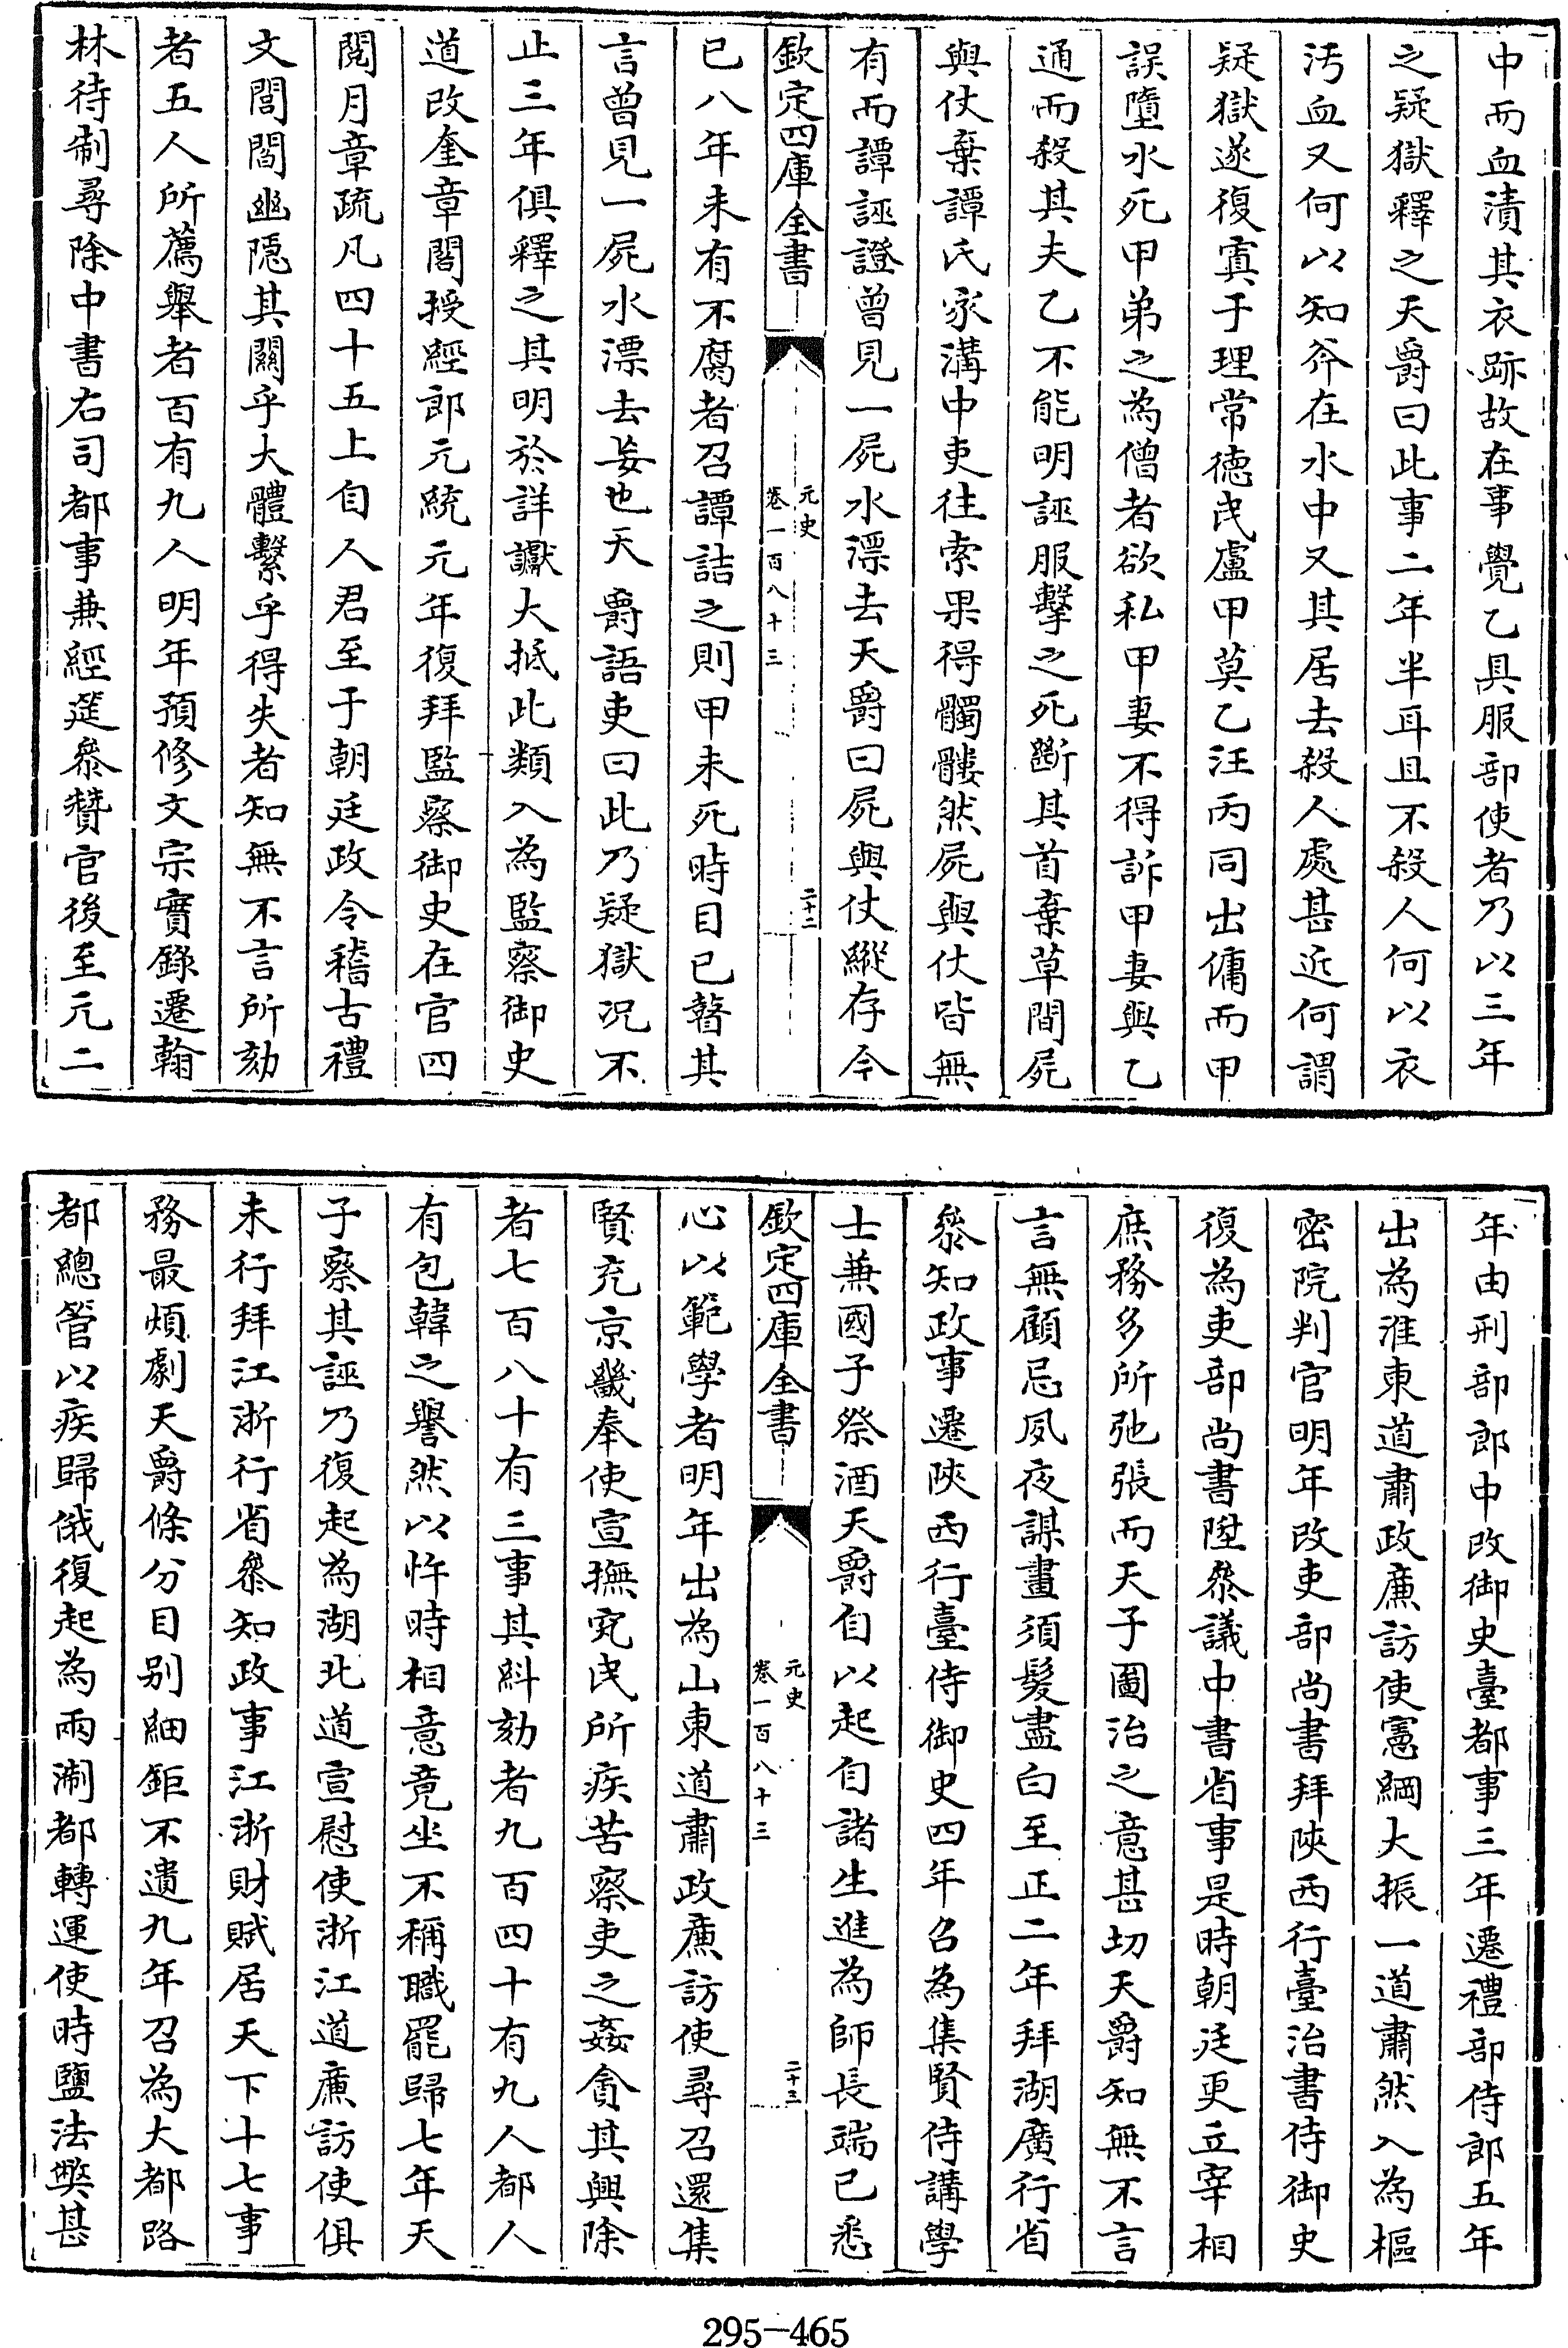 中而血漬其衣跡故在事覺乙具服部使者乃以三年
之疑獄釋之天爵曰此事二年半耳且不殺人何以衣
汚血又何以知斧在水中又其居去殺人處甚近何謂
疑獄遂復寘于理常德民盧甲莫乙汪丙同出傭而甲
誤墮水死甲弟之為僧者欲私甲妻不得訴甲妻與乙
通而殺其夫乙不能明誣服擊之死斷其首棄草間屍
與仗棄譚氏家溝中吏往索果得髑髏然屍與仗皆無
有而譚誣證曾見一屍水漂去天爵曰屍與仗縱存今
欽定四庫全書
元史
卷一百八十三
二十二
已八年未有不腐者召譚詰之則甲未死時目已瞽其
言曾見一屍水漂去妄也天爵語吏曰此乃疑獄况不
止三年俱釋之其明於詳讞大抵此類入為監察御史
道改奎章閣授經郎元統元年復拜監察御史在官四
閱月章疏凡四十五上自人君至于朝廷政令稽古禮
文閭閻幽隱其關乎大體繫乎得失者知無不言所劾
者五人所薦舉者百有九人明年預修文宗實錄遷翰
林待制尋除中書右司都事兼經筵參贊官後至元二
年由刑部郎中改御史臺都事三年遷禮部侍郎五年
出為淮東道肅政廉訪使憲綱大振一道肅然入為樞
密院判官明年改吏部尚書拜陝西行臺治書侍御史
復為吏部尚書陞參議中書省事是時朝廷更立宰相
庶務多所弛張而天子圖治之意甚切天爵知無不言
言無顧忌夙夜謀畫須髮盡白至正二年拜湖廣行省
參知政事遷陝西行臺侍御史四年召為集賢侍講學
士兼國子祭酒天爵自以起自諸生進為師長端已悉
欽定四庫全書
元史
卷一百八十三
二十三
心以範學者明年出為山東道肅政廉訪使尋召還集
賢充京畿奉使宣撫究民所疾苦察吏之姦貪其興除
者七百八十有三事其糾劾者九百四十有九人都人
有包韓之譽然以忤時相意竟坐不稱職罷歸七年天
子察其誣乃復起為湖北道宣慰使浙江道廉訪使俱
未行拜江浙行省參知政事江浙財賦居天下十七事
務最煩劇天爵條分目别細鉅不遺九年召為大都路
都總管以疾歸俄復起為兩淛都轉運使時鹽法獘甚
295-465